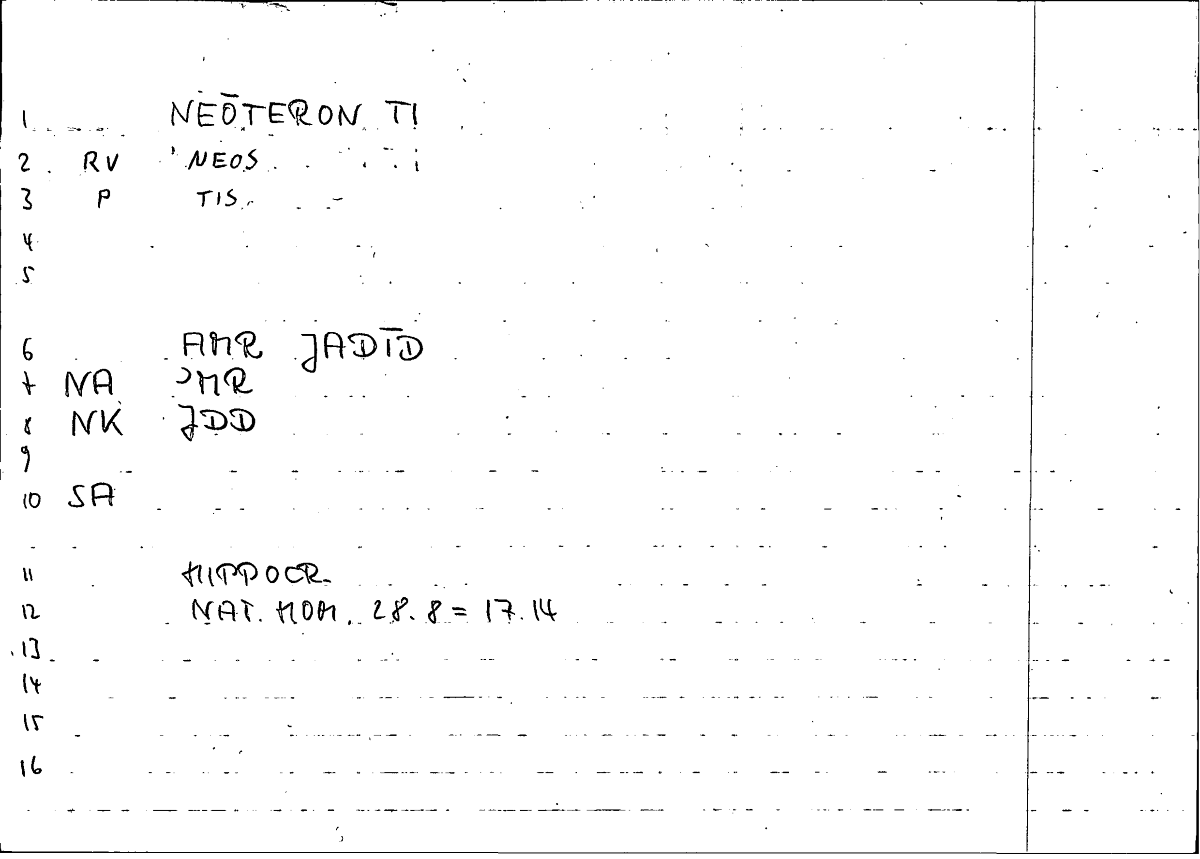 1 NEŌTERON TI
2 RV NEOS
3 P TIS
4
5
6 AMR JADĪD
7 NA ʾMR
8 NK JDD
9
10 SA
11 HIPPOCR.
12 NAT. HOM. 28.8 = 17.14
13
14
15
16